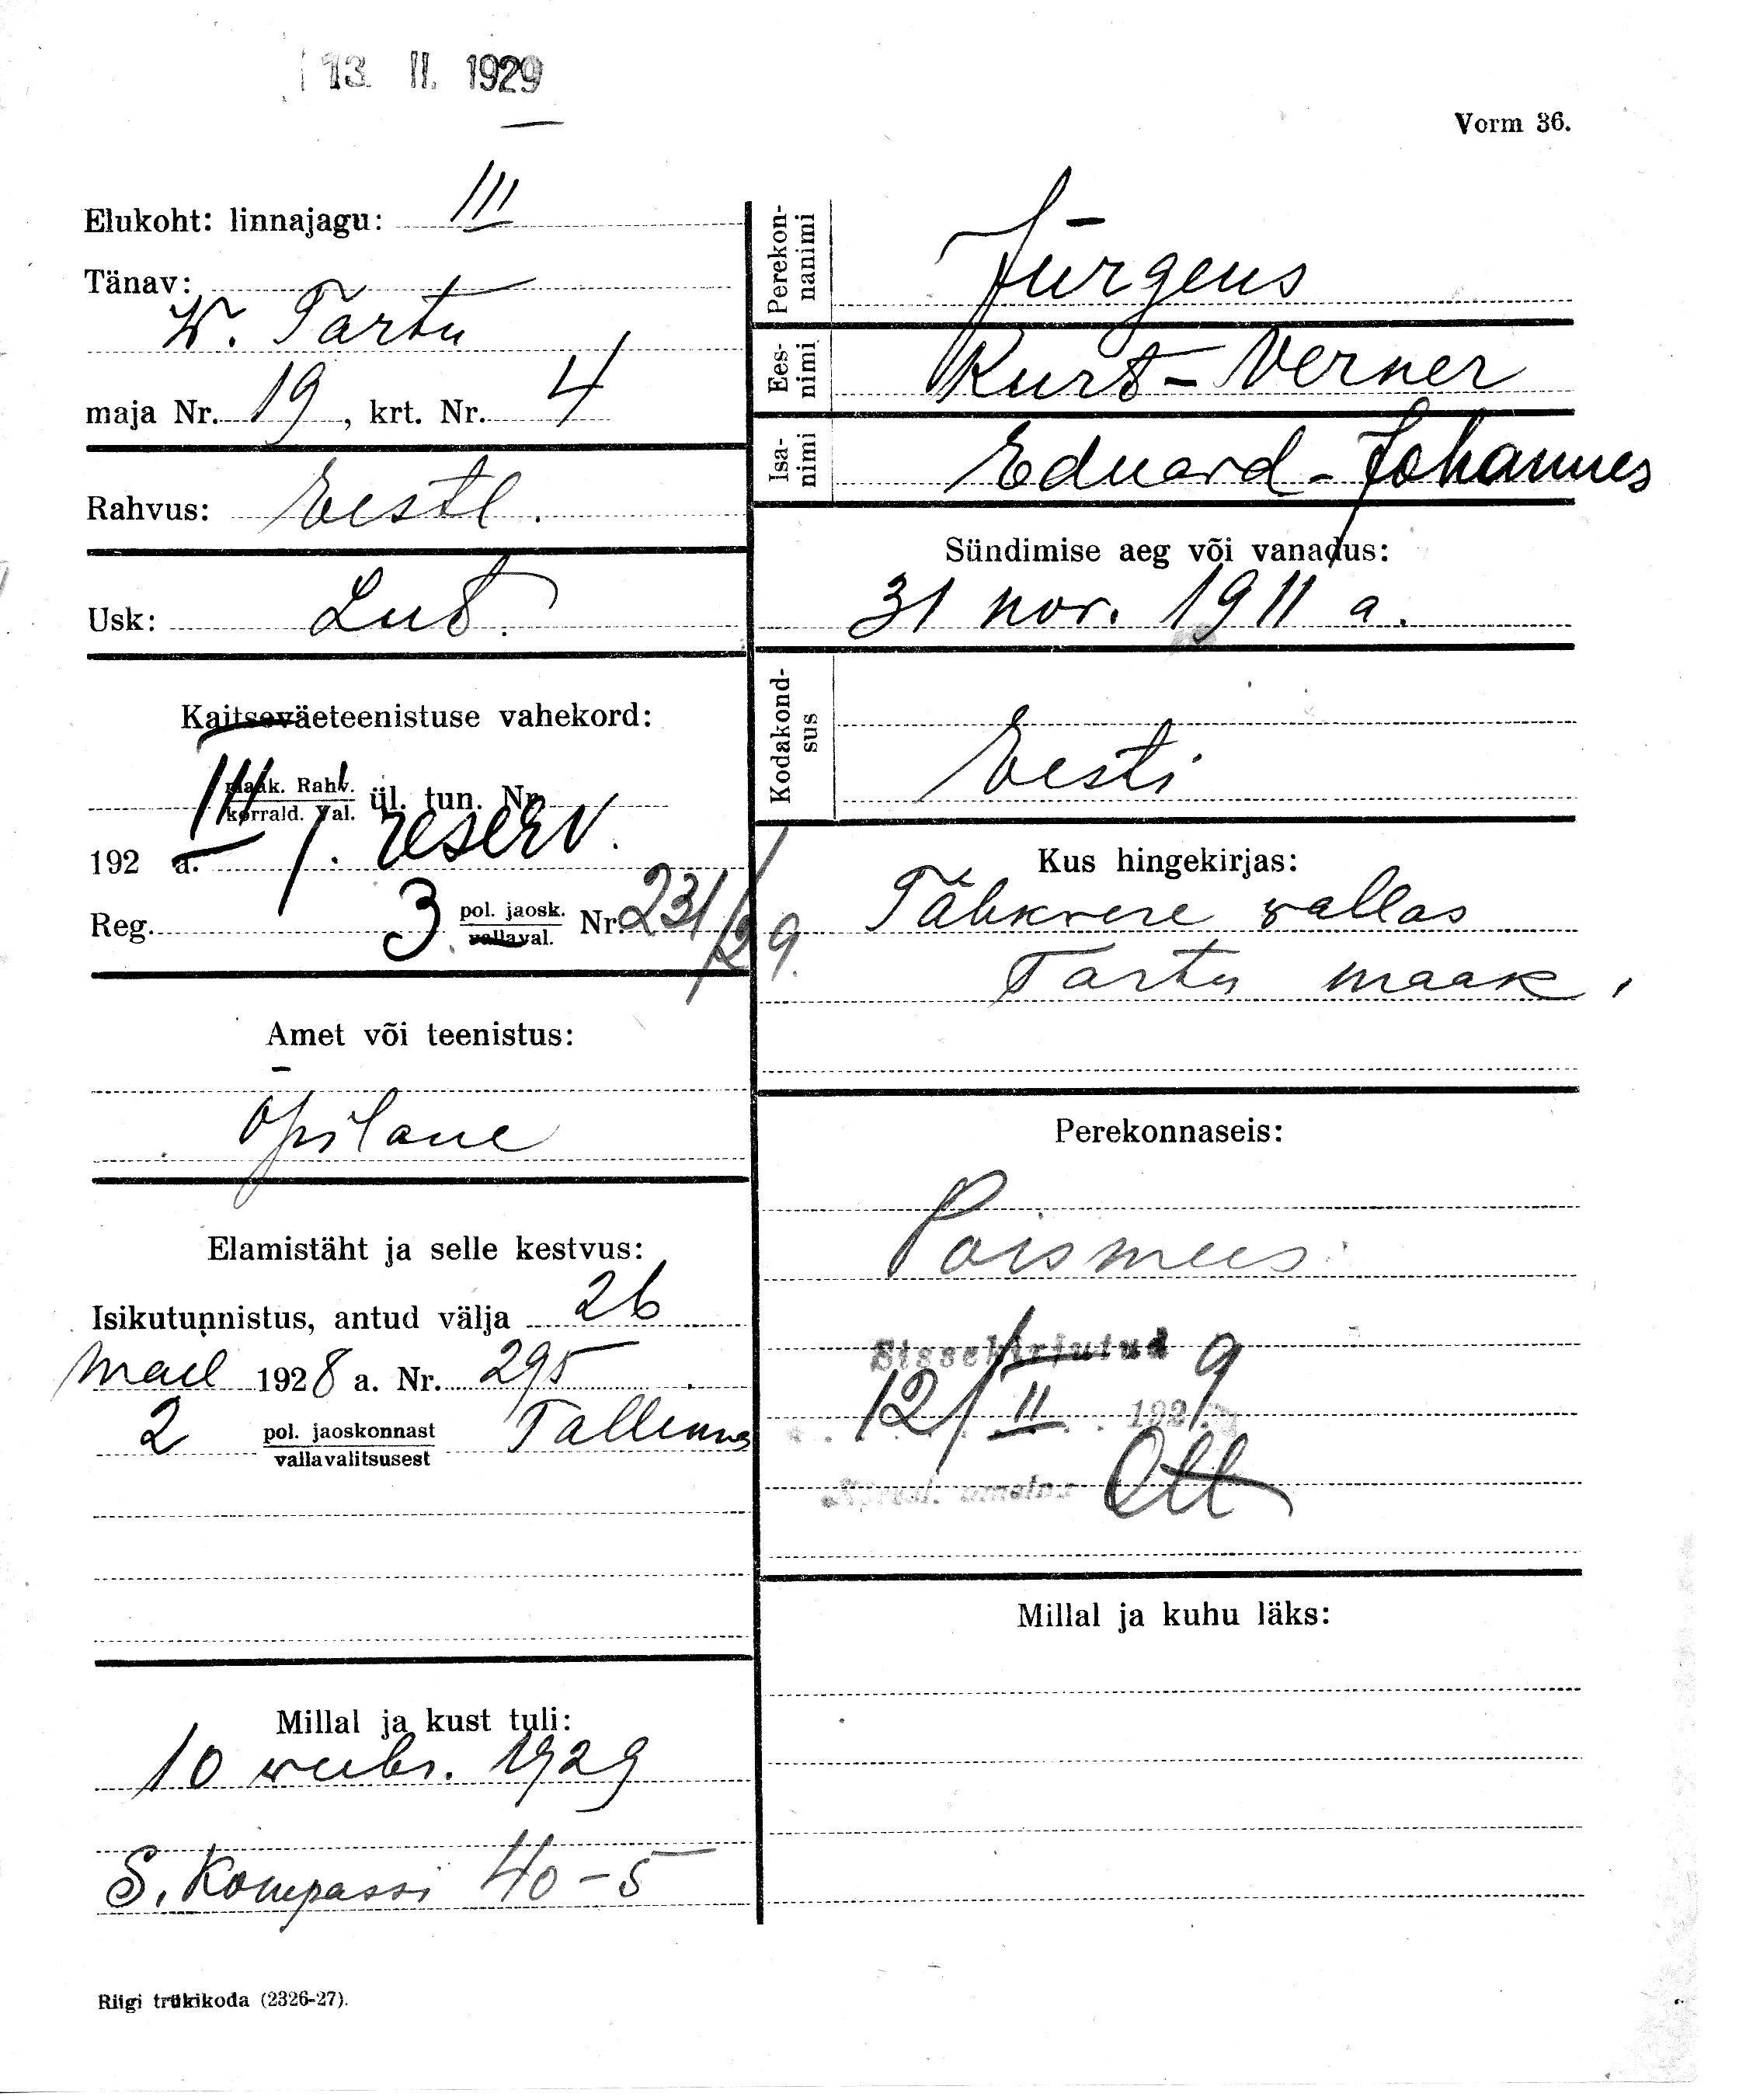 13. II. 1929
Vorm 36.
Elukoht: linnajagu: III
Tänav:
W. Tartu
maja Nr. 19, krt. Nr. 4
Rahvus: Eestl.
Usk: Lut.
Kaitseväeteenistuse vahekord:
III maak. Rahv. ül. tun. Nr.
korrald. Val.
192 a. 1. reserv.
Reg. 3. pol. jaosk. Nr. 231/29.
vallaval.
Amet või teenistus:
Õpilane
Elamistäht ja selle kestvus:
Isikutunnistus, antud välja 26
mail 1928 a. Nr. 295
2 pol. jaoskonnast Tallinna
vallavalitsusest
Millal ja kust tuli:
10 weebr. 1929
S. Kompassi 40-5
Riigi trükikoda (2326-27).
Perekon-
nanimi
Jürgens
Ees-
nimi
Kurt-Verner
Isa-
nimi
Eduard-Johannes
Sündimise aeg või vanadus:
31 nov. 1911 a.
Kodakond-
sus
Eesti
Kus hingekirjas:
Tähkvere wallas
Tartu maak.
Perekonnaseis:
Poismees
Sissekirjutud
12/II 1929
Ott
Millal ja kuhu läks: